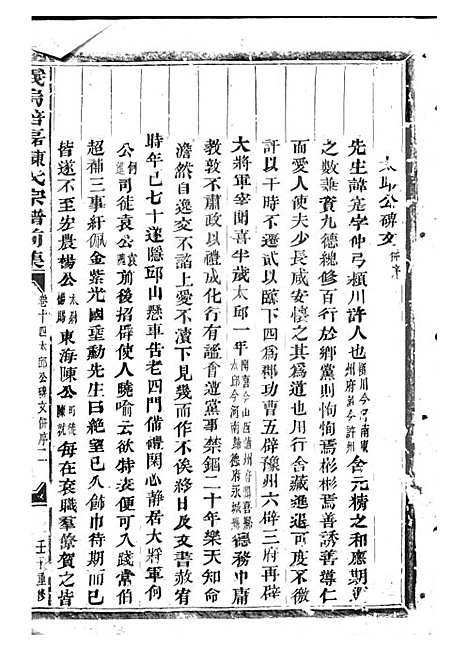 太邱公碑文併序
先生諱寔字仲弓潁川許人也潁川今河南東州府許今許州含元精之和應期運
之數兼資九德總修百行於鄉黨則恂恂焉彬彬焉善誘善導仁
而愛人使夫少長咸安懷之其爲道也用行舍藏進退可度不徼
訐以干時不遷貳以臨下四爲郡功曹五辟豫州六辟三府再辟
大將軍宰聞喜半歲太邱一年聞喜今山西蒲州府聞喜縣太邱今河南歸德府永城縣德務中庸
教敦不肅政以禮成化行有謐會遭黨事禁錮二十年樂天知命
澹然自逸交不諂上愛不瀆下見幾而作不俟終日及文書赦宥
時年已七十遂隱邱山懸車告老四門備禮閑心靜居大將軍何
公何進司徒袁公袁隗前後招辟使人曉喻云欲特表便可入踐常伯
超補三事紆佩金紫光國垂勳先生曰絕望已久飾巾待期而已
皆遂不至宏農楊公太尉楊賜東海陳公司徒陳耽每在袞職羣僚賀之皆
義烏
陳氏宗譜前集
卷十四太邱公碑文併序二
壬午重修